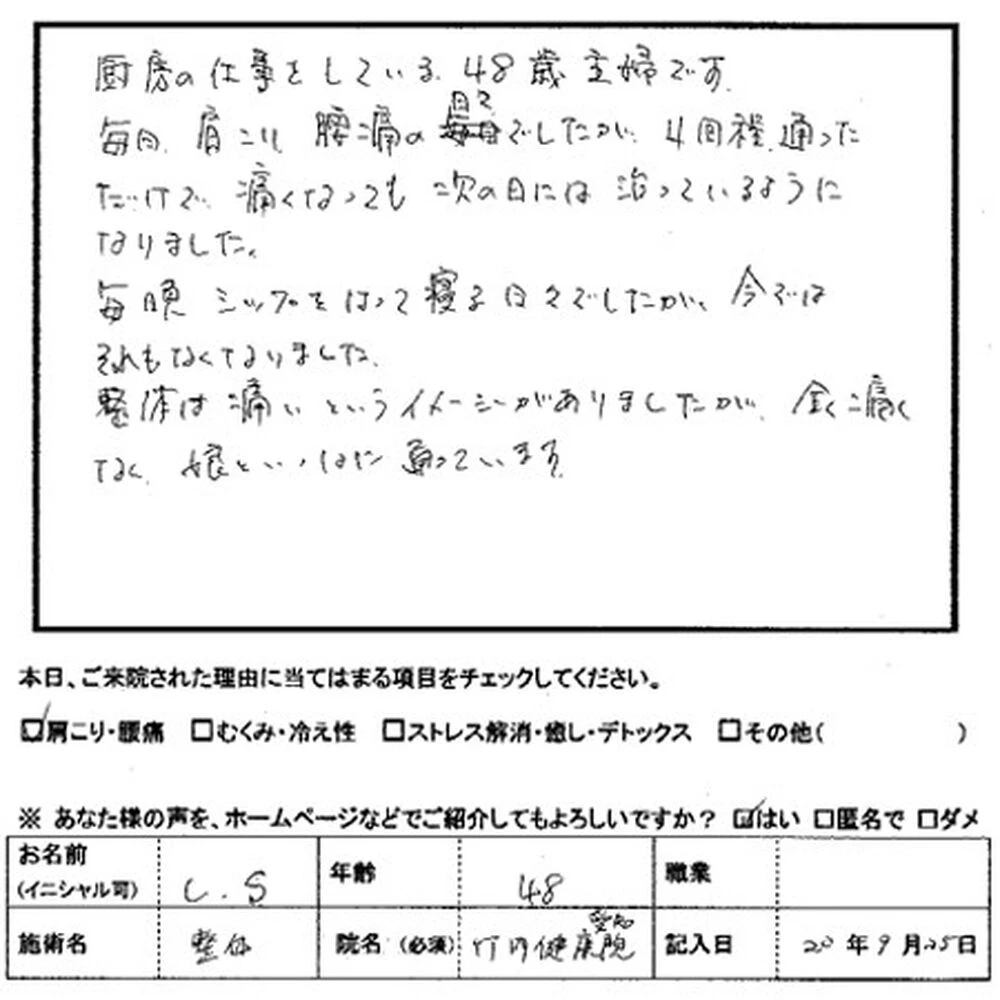 厨房の仕事をしている、48歳主婦です。
毎日、肩こり、腰痛の日々でしたが、4回程、通った
だけで、痛くなっても次の日には治っているように
なりました。
毎晩シップをはって寝る日々でしたが、今では
それもなくなりました。
整体は痛いというイメージがありましたが、全く痛く
なく、娘といっしょに通っています。
本日、ご来院された理由に当てはまる項目をチェックしてください。
☑肩こり・腰痛 □むくみ・冷え性 □ストレス解消・癒し・デトックス □その他( )
※ あなた様の声を、ホームページなどでご紹介してもよろしいですか？ ☑はい □匿名で □ダメ
お名前 (イニシャル可) C.S 年齢 48 職業
施術名 整体 院名 (必須) 竹内健康院 記入日 20年9月25日